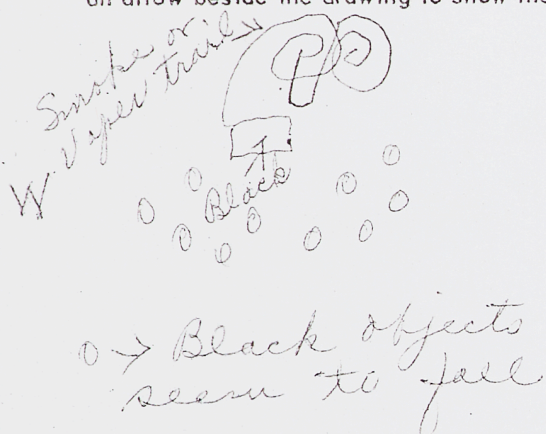 an arrow beside the drawing to show the
Smoke or
Viper trail
W
Black
Black objects
seem to fall